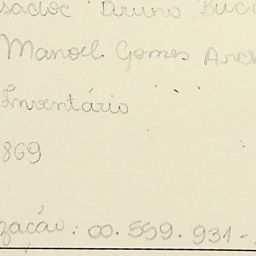 sadoc Bruno
Manoel Gomes
Inventário
869
zação: 00.559.931-